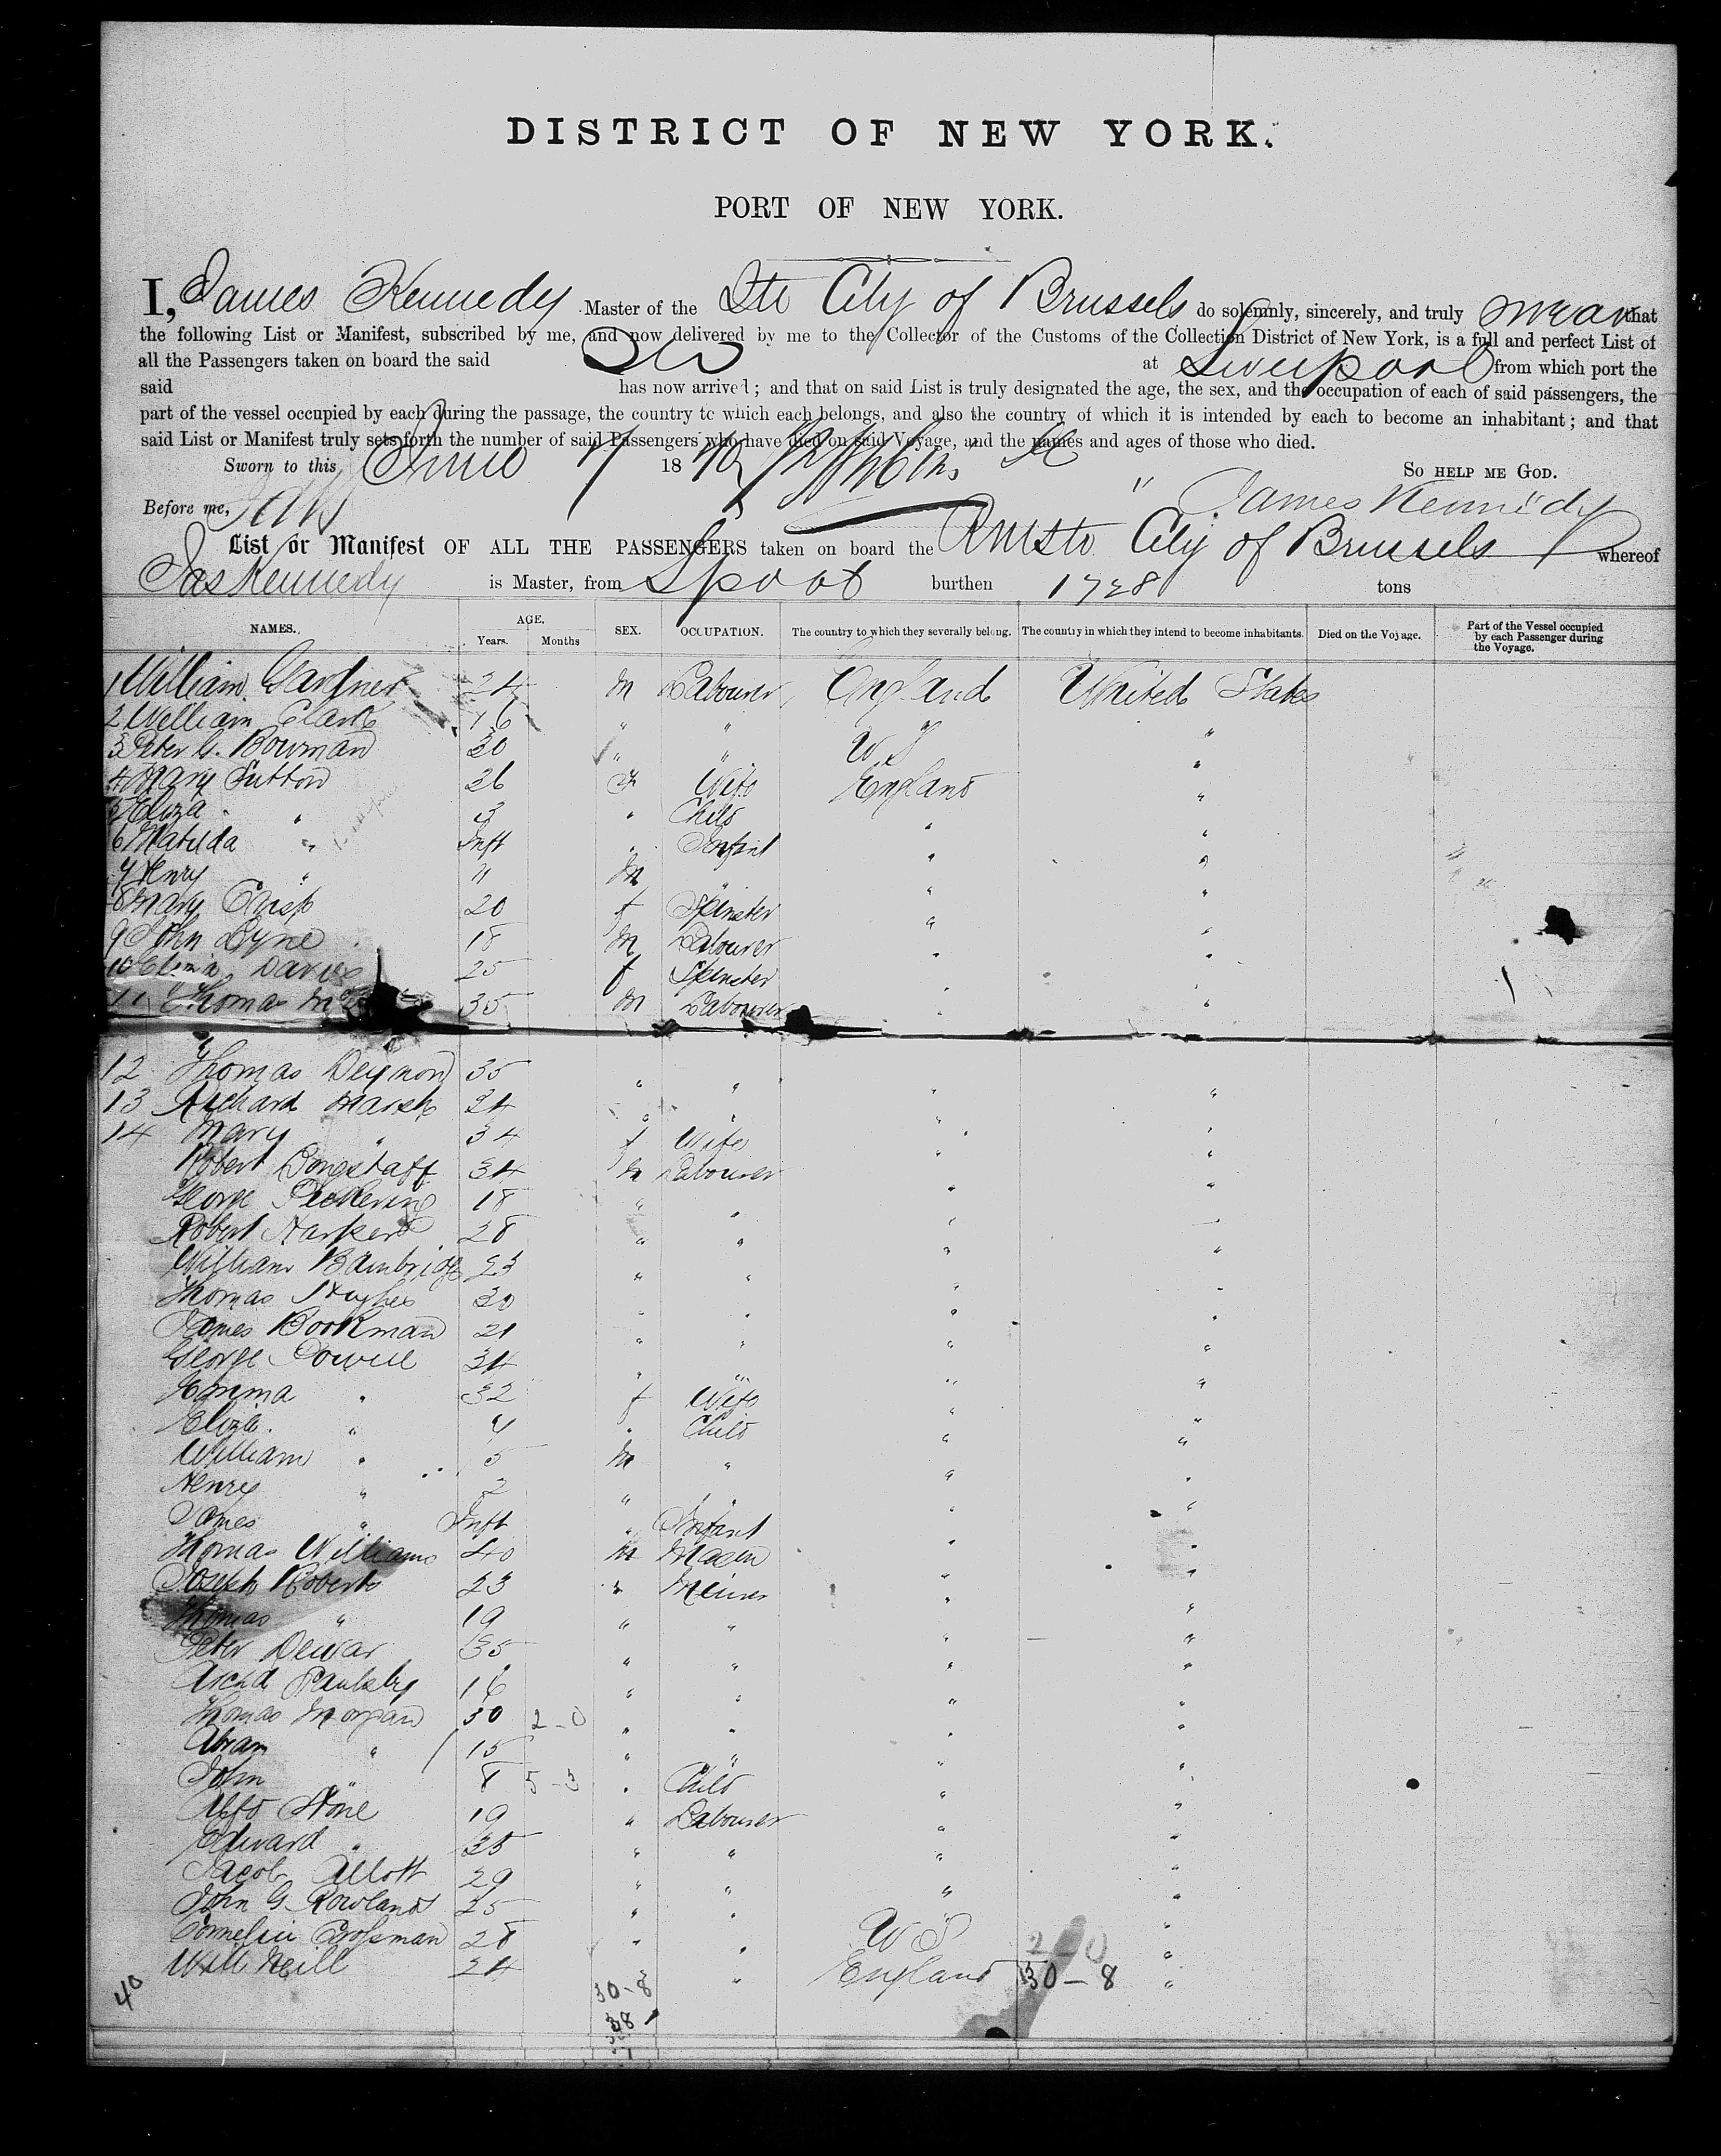 DISTRICT OF NEW YORK.
PORT OF NEW YORK.
I, James Kennedy Master of the Str City of Brussels do solemnly, sincerely, and truly swear that
the following List or Manifest, subscribed by me, and now delivered by me to the Collector of the Customs of the Collection District of New York, is a full and perfect List of
all the Passengers taken on board the said at Liverpool from which port the
said has now arrived; and that on said List is truly designated the age, the sex, and the occupation of each of said passengers, the
part of the vessel occupied by each during the passage, the country to which each belongs, and also the country of which it is intended by each to become an inhabitant; and that
said List or Manifest truly sets forth the number of said Passengers who have died on said Voyage, and the names and ages of those who died.
Sworn to this June 7 18 SO HELP ME GOD.
Before me, James Kennedy
List or Manifest OF ALL THE PASSENGERS taken on board the City of Brussels whereof
Jas Kennedy is Master, from Lpool burthen 1728 tons
NAMES. AGE. Years. Months SEX. OCCUPATION. The country to which they severally belong. The country in which they intend to become inhabitants. Died on the Voyage. Part of the Vessel occupied by each Passenger during the Voyage.
1 William Gardner 24 M Labourer England United States
2 William Clark 16 " " "
3 Peter G. Bowman 30 " " U S "
4 Mary Sutton 26 F Wife England "
5 Eliza " 3 " Child " "
6 Matilda " Inft " Infant " "
7 Henry " " M " " "
8 Mary Crisp 20 f Spinster " "
9 John Lyne 18 M Labourer " "
10 Davies 25 f Spinster " "
11 Thomas 35 M Labourer " "
12 Thomas Deymond 35 " " " "
13 Richard Marsh 24 " " " "
14 Mary " 34 f Wife " "
Robert Longstaff 34 M Labourer " "
George Pickering 18 " " " "
Robert Harker 28 " " " "
William Bambridge 23 " " " "
Thomas Hughes 30 " " " "
James Bookman 21 " " " "
George Powell 34 " " " "
Emma " 32 f Wife " "
Eliza " 7 " Child " "
William " 5 M " " "
Henry " 2 " " " "
James " Inft " Infant " "
Thomas Williams 40 M Mason " "
Joseph Roberts 23 " Miner " "
Thomas " 19 " " " "
Peter Dewar 35 " " " "
Archd 16 " " " "
Thomas Morgan 30 2-0 " " " "
Abram " 15 " " " "
John " 8 5-3 " Child " "
Alfd Stone 19 " Labourer " "
Edward " 25 " " " "
Jacob Allott 29 " " " "
John G. Rowlands 25 " " " "
Cornelius Crossman 28 " " U S 2-0 "
Will Neill 24 " England 30-8 "
40 30-8
38